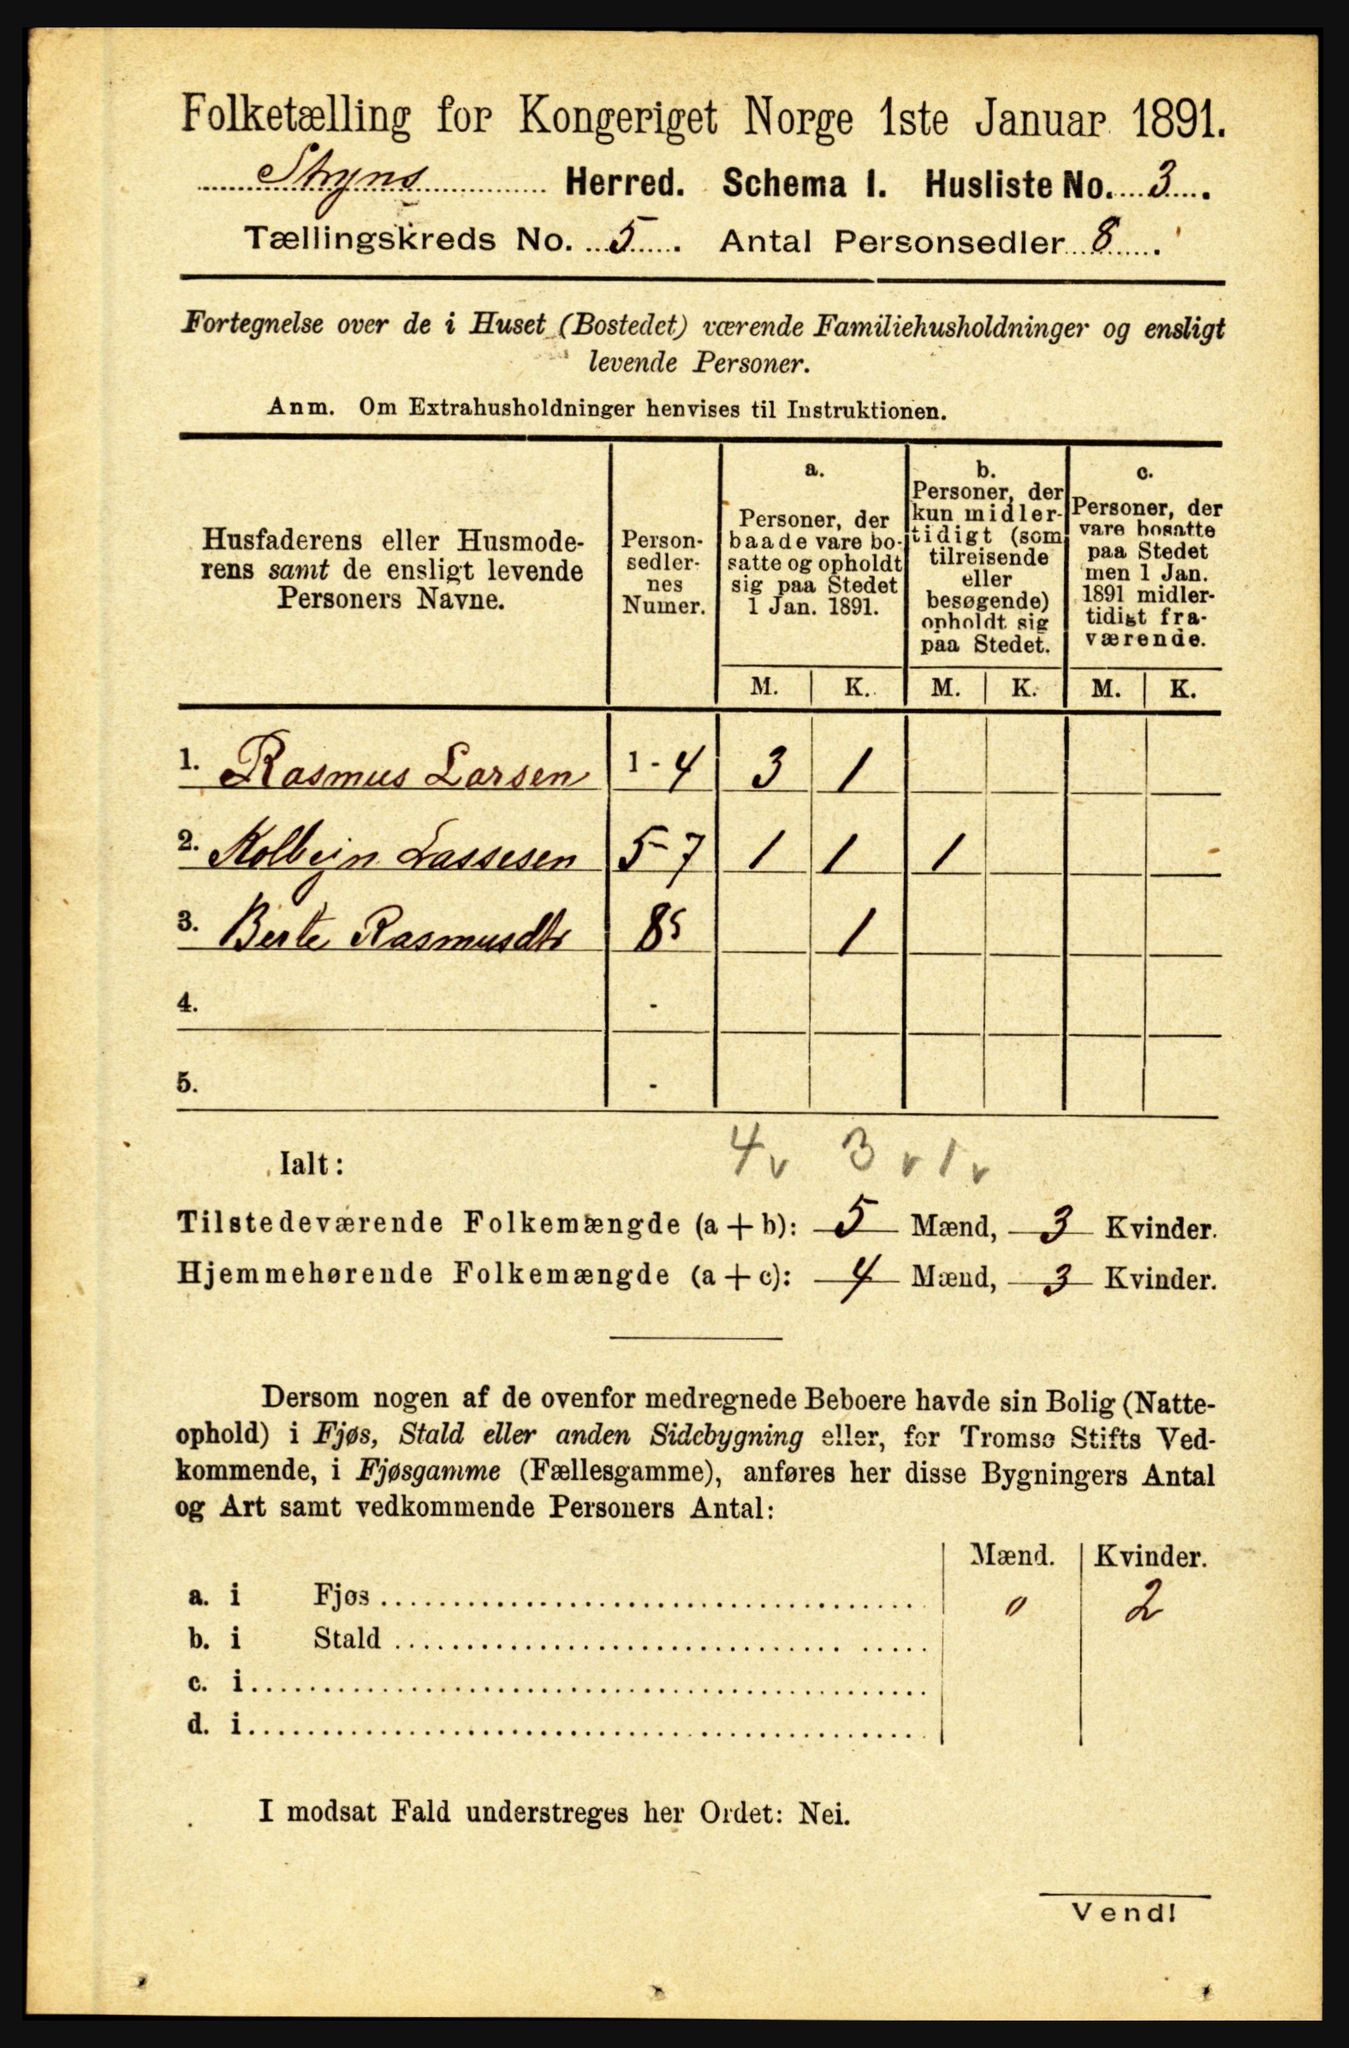 Folketælling for Kongeriget Norge 1ste Januar 1891.
Stryns Herred. Schema I. Husliste No. 3.
Tællingskreds No. 5. Antal Personsedler 8.
Fortegnelse over de i Huset (Bostedet) værende Familiehusholdninger og ensligt
levende Personer.
Anm. Om Extrahusholdninger henvises til Instruktionen.
Husfaderens eller Husmode-
rens samt de ensligt levende
Personers Navne.
Person-
sedler-
nes
Numer.
a.
Personer, der
baade vare bo-
satte og opholdt
sig paa Stedet
1 Jan. 1891.
b.
Personer, der
kun midler-
tidigt (som
tilreisende
eller
besøgende)
opholdt sig
paa Stedet.
c.
Personer, der
vare bosatte
paa Stedet
men 1 Jan.
1891 midler-
tidigt fra-
værende.
M. K. M. K. M. K.
1. Rasmus Larsen 1-4 3 1
2. Kolbein Lassesen 5-7 1 1 1
3. Berte Rasmusdtr 8 1
4. -
5. -
Ialt: 4 v 3 v 1 v
Tilstedeværende Folkemængde (a + b): 5 Mænd, 3 Kvinder.
Hjemmehørende Folkemængde (a + c): 4 Mænd, 3 Kvinder.
Dersom nogen af de ovenfor medregnede Beboere havde sin Bolig (Natte-
ophold) i Fjøs, Stald eller anden Sidebygning eller, for Tromsø Stifts Ved-
kommende, i Fjøsgamme (Fællesgamme), anføres her disse Bygningers Antal
og Art samt vedkommende Personers Antal:
Mænd. Kvinder.
a. i Fjøs 0 2
b. i Stald
c. i
d. i
I modsat Fald understreges her Ordet: Nei.
Vend!